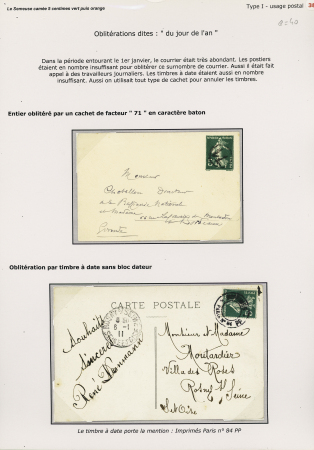 La Semeuse camée 5 centimes vert puis orange
Type I - usage postal 38
Oblitérations dites : " du jour de l'an "
Dans la période entourant le 1er janvier, le courrier était très abondant. Les postiers
étaient en nombre insuffisant pour oblitérer ce surnombre de courrier. Aussi il était fait
appel à des travailleurs journaliers. Les timbres à date étaient aussi en nombre
insuffisant. Aussi on utilisait tout type de cachet pour annuler les timbres.
Entier oblitéré par un cachet de facteur "71 " en caractère baton
Monsieur
Chatellon Directeur
de la
Gironde
Oblitération par timbre à date sans bloc dateur
CARTE POSTALE
6 -1
11
Souhaits
Sincères
René
Monsieur et Madame
Moutardier
Villa des Roses
Rosny s/ Seine
Set Oise
Le timbre à date porte la mention : Imprimés Paris n° 84 PP